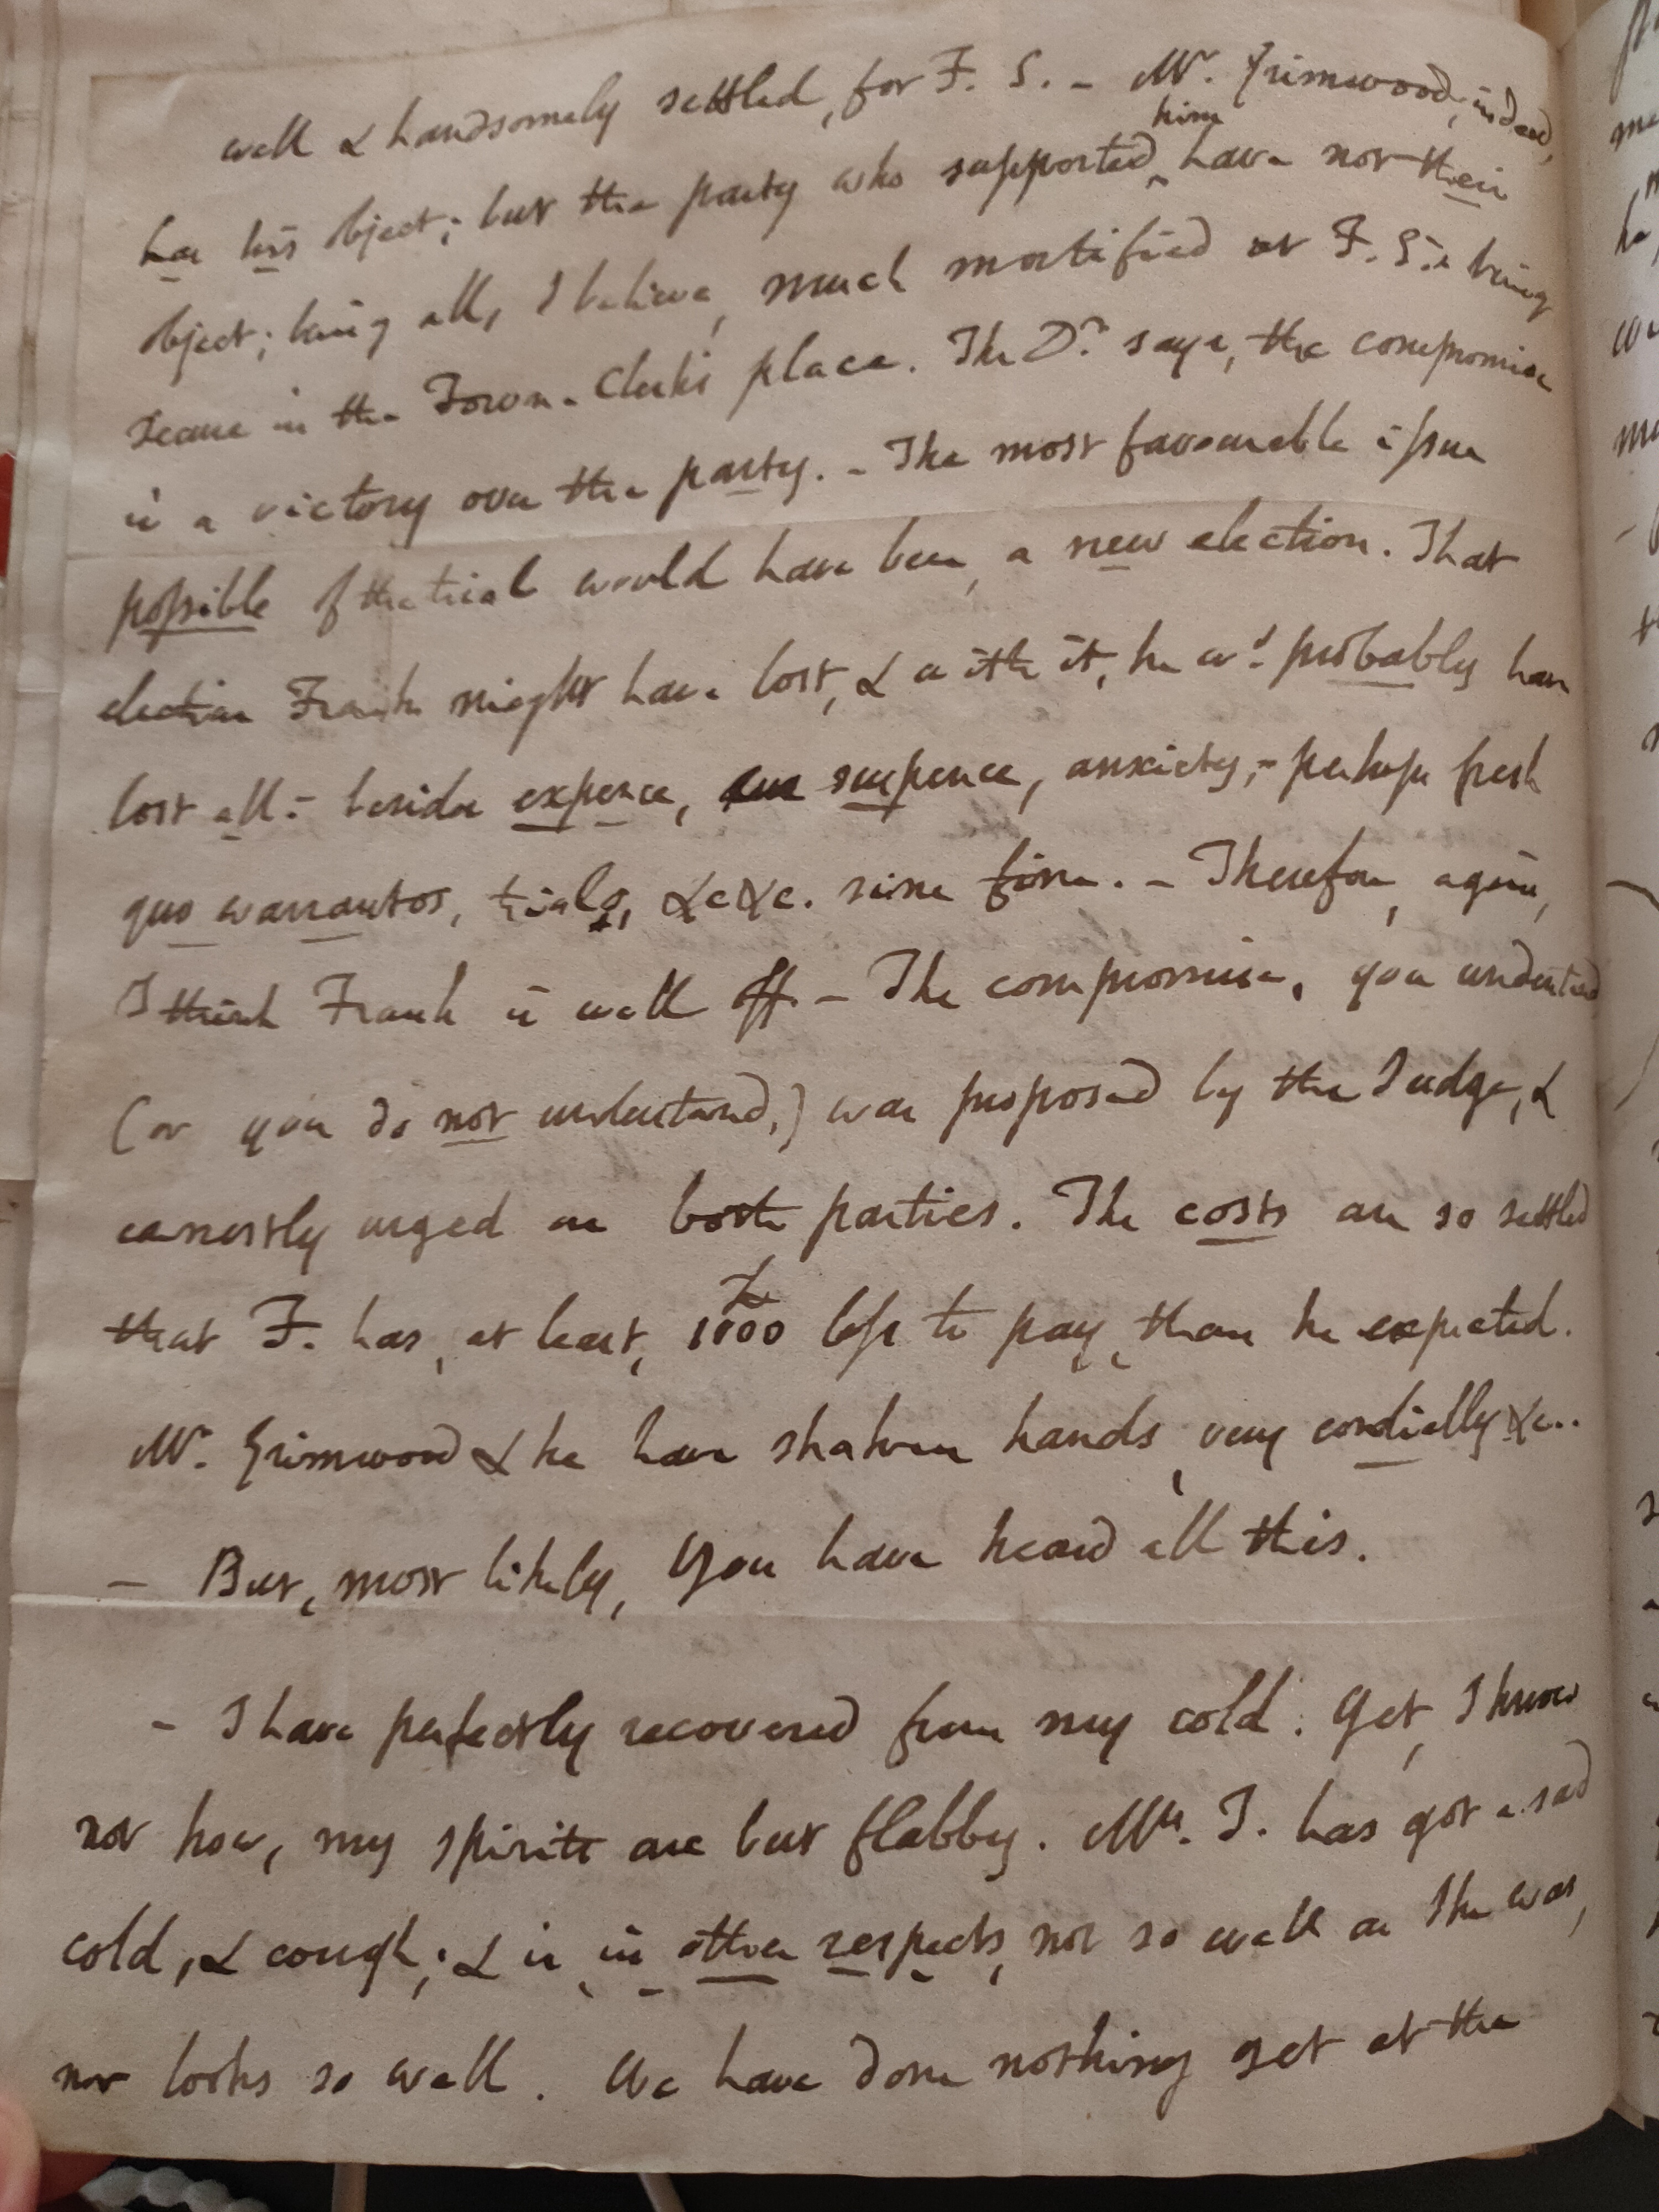 well & handsomely settled, for F. S. – Mr. Grimwood, indeed,
has his object; but the party who supported him have not their
object; being all, I believe, much mortified at F. S.'s being
secure in the Town-Clerk's place. The Dr. says, the compromise
is a victory over the party. – The most favourable issue
possible of the trial would have been, a new election. That
election Frank might have lost, & with it, he wd. probably have
lost all: – beside expence, suspence, anxiety, – perhaps fresh
quo warrantos, trials, &c &c. sine fine. – Therefore, again,
I think Frank is well off. – The compromise, you understand
(or you do not understand,) was proposed by the Judge, &
earnestly urged on both parties. The costs are so settled
that F. has, at least, 1000£ less to pay, than he expected.
Mr. Grimwood & he have shaken hands, very cordially &c..
– But, most likely, you have heard all this.
– I have perfectly recovered from my cold: yet, I know
not how, my spirits are but flabby. Mrs. T. has got a sad
cold, & cough; & is, in other respects, not so well as she was,
nor looks so well. We have done nothing yet at the